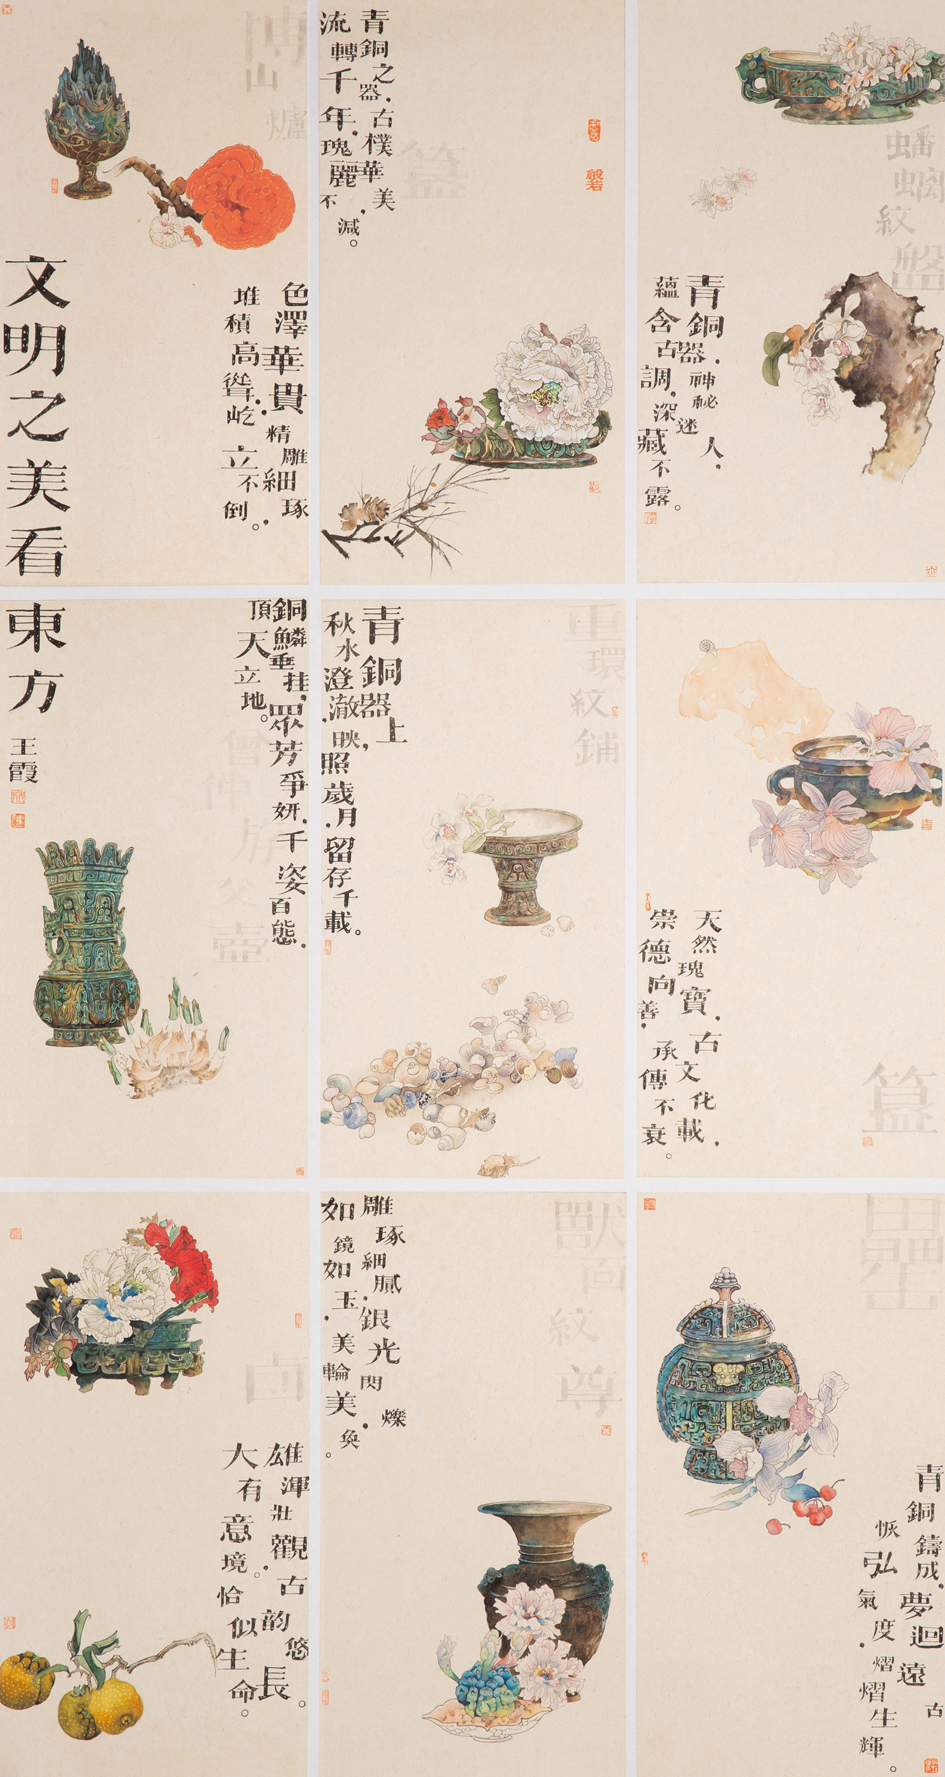 博山爐
色澤華貴，精雕細琢，
堆積高聳，屹立不倒。
文明之美看東方
王霞
青銅之器，古樸華美，
流轉千年，瑰麗不減。
簋
般若
蟠螭紋盤
青銅器，神秘迷人，
蘊含古調，深藏不露。
銅鱗垂挂，眾芳爭妍，千姿百態，
頂天立地。
父壺
重環紋鋪
青銅器上，
秋水澄澈，映照歲月，留存千載。
天然瑰寶，古文化載，
崇德向善，承傳不衰。
簋
卣
雄渾壯觀，古韵悠長。
大有意境。恰似生命。
獸面紋尊
雕琢細膩，銀光閃爍，
如鏡如玉，美輪美奐。
罍
青銅鑄成，夢迴遠古
恢弘氣度，熠熠生輝。